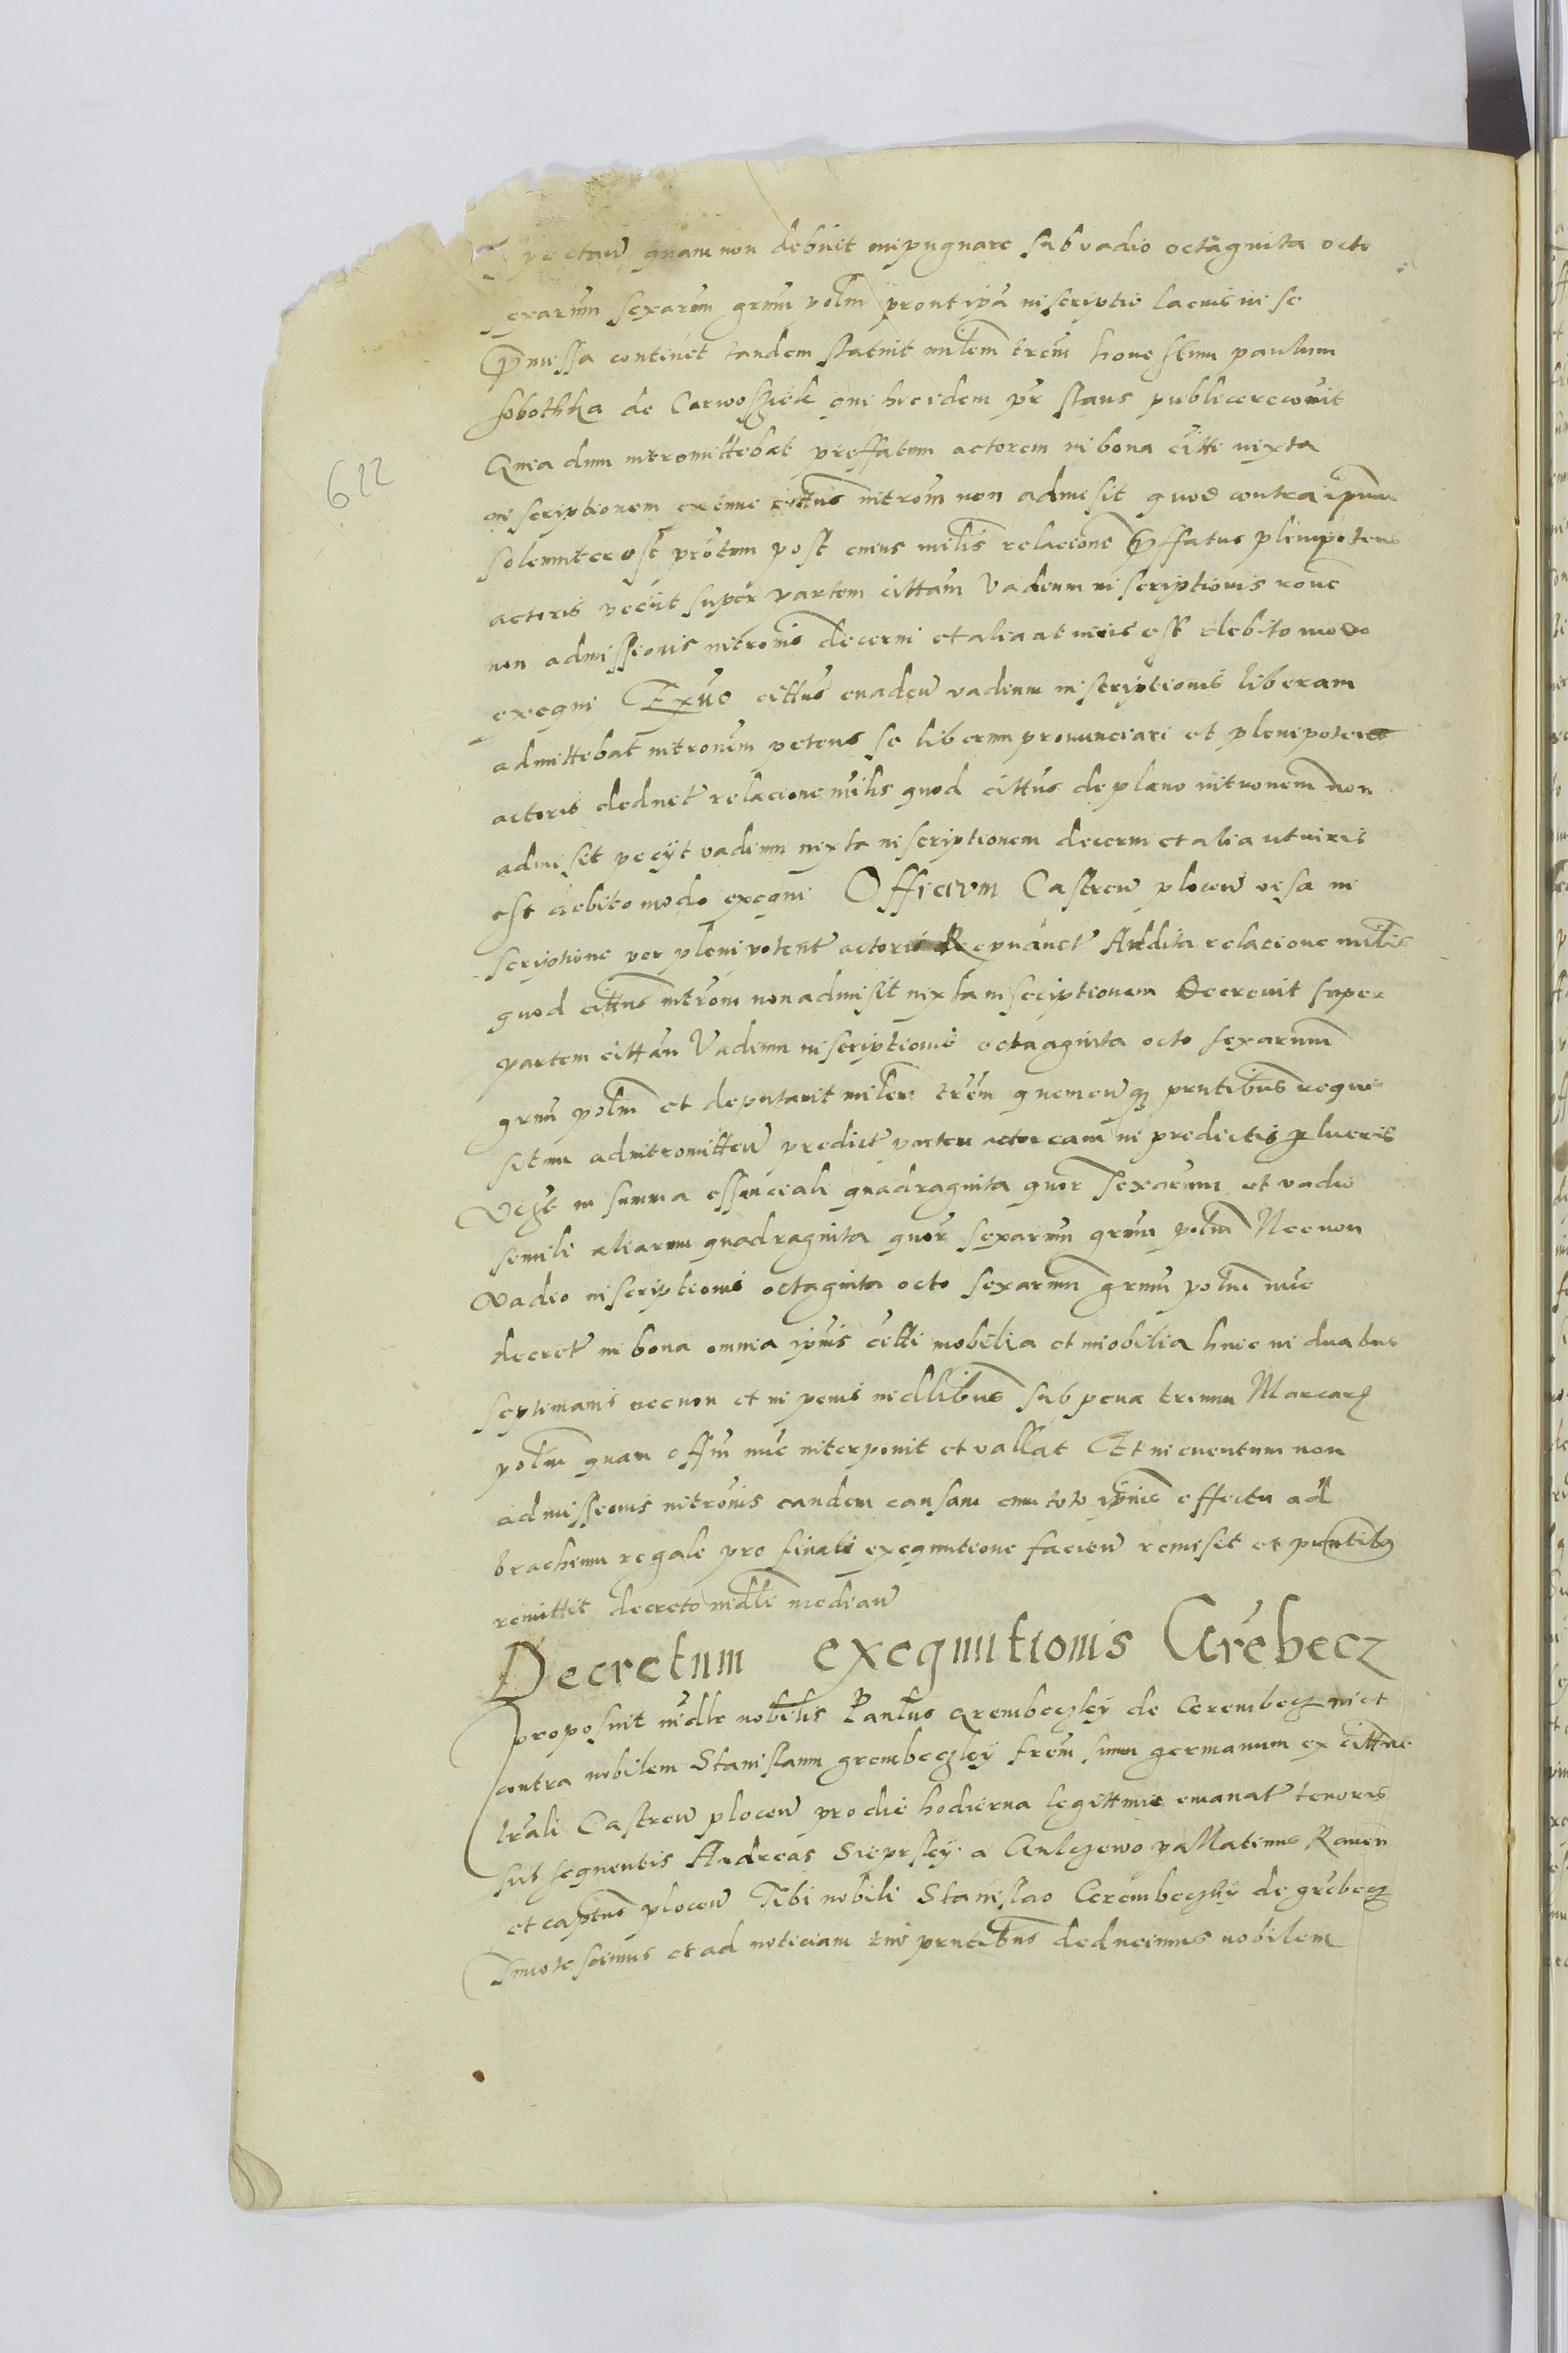 spectan quam non debuit inpugnare sub vadio octuaginta octo
sexarum sexarum grum polm prout ipa inscriptio lacius in se
pmissa continet tandem statuit milem trem honestum paulum
sobothka de Carwosziek qui hic idem pr stans publice recowit
Quia dum intromittebat preffatum actorem in bona citti iuxta
inscriptionem extunc cittus introm non admisit quod contra ipum
solenniter est protum post cuius milis relacione pffatus plenipotens
actoris peciit super partem cittam Vadium inscriptionis rone
non admissionis intronis decerni et alia ut iuris est debito modo
exequi Exuo cittus evaden vadium inscriptionis liberam
admittebat intronem petens se liberum pronunciari et plenipotens
actoris deducit relacione milis quod cittus de plano intronem non
admisit peciit vadium iuxta inscriptionem decerni et alia ut iuris
est debito modo exequi Officium Castren plocen visa in
scriptione per plenipotent actoris Repnduct Audita relacione milis
quod cittus introm non admisit iuxta inscriptionem decrevit super
partem cittam Vadium inscriptionis octuaginta octo sexarum
grum polm et deputavit milem trem quemcunq prntibus requi
situm ad intromitten predict partem actoream in predictis p lucris
Vczt in summa essenciali quadraginta quor sexarum et vadio
simili aliarum quadraginta quor sexarum grum polm Necnon
Vadio inscriptionis octuaginta octo sexarum grum polm nuc
decret in bona omnia ipius citti mobilia et inobilia hinc in duabus
septimanis necnon et in penis iudlibus sub pena trium Marcarum
polm quam offm nuc interponit et vallat Et in eventum non
admissionis intronis eandem causam cum toto ipius effectu ad
brachium regale pro finali exequutione facien remisit et prntibus
remittit decreto iudli median
Decretum exequutionis Grebecz
proposuit iudlr nobilis Paulus Grembeczky de Cerembecz in et
contra nobilem Stanislaum grembeczky frem suum germanum ex cittne
trali Castren plocen pro die hodierna legittmie emanat tenoris
subsequentis Andreas Sieprsky a Gulczewo pallatinus Raven
et captus plocen Tibi nobili Stanislao Cerembeczky de grebecz
Innotescimus et ad noticiam tui prntibus deducimus nobilem
612